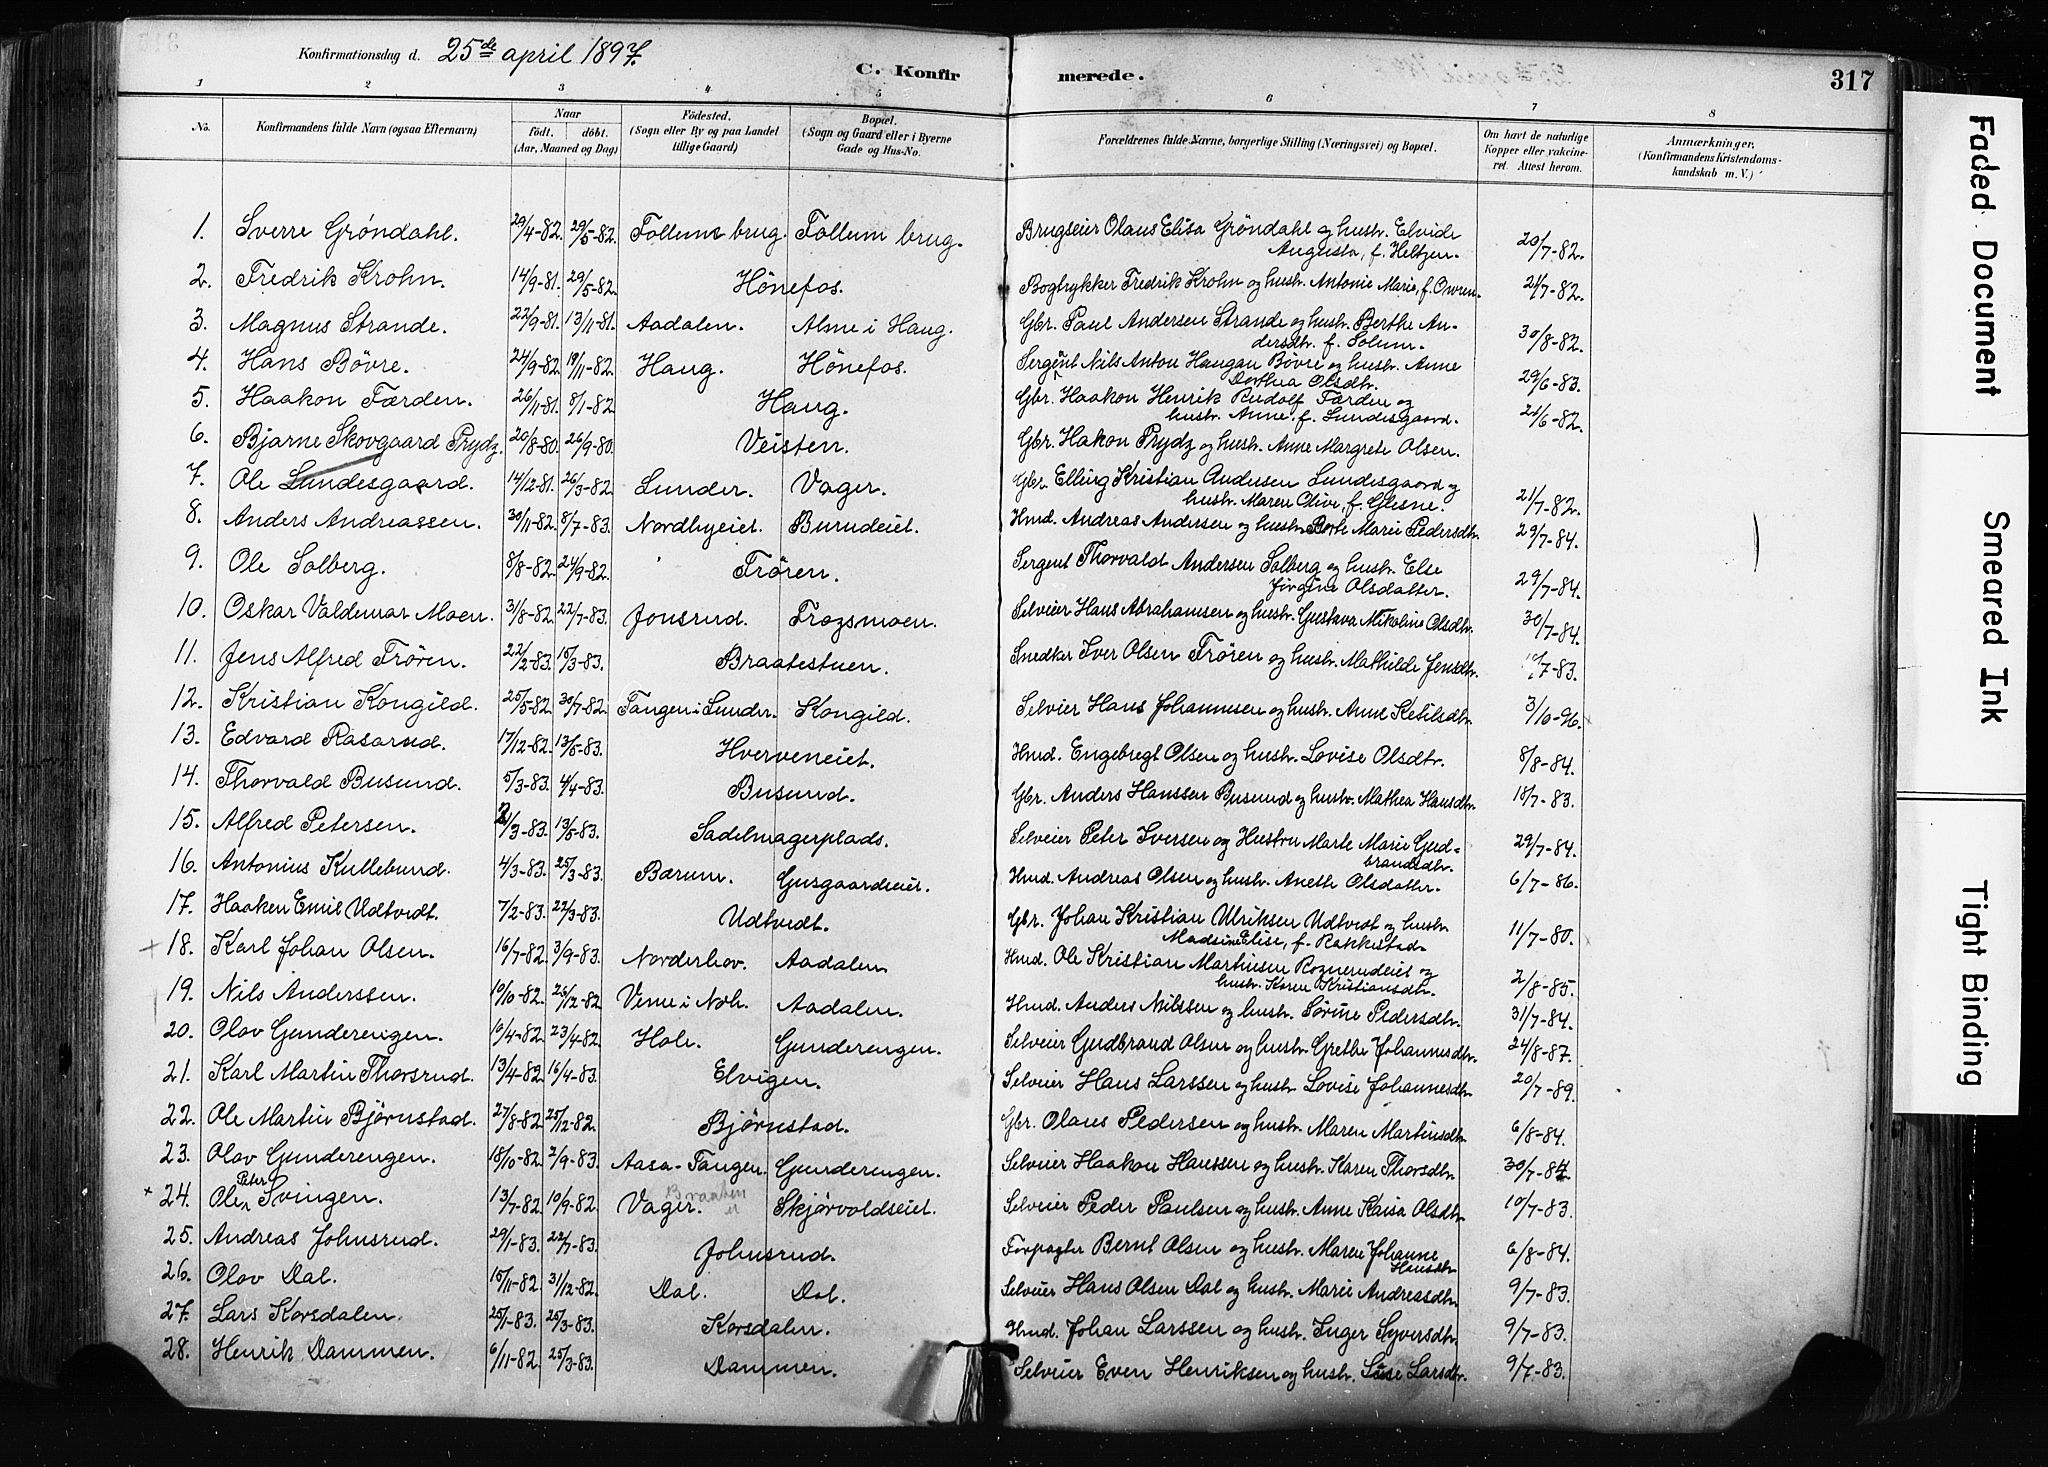 Konfirmationsdag d. 25de april 1897.
C. Konfirmerede.
317
1 2 3 4 5 6 7 8
No.
Konfirmandens fulde Navn (ogsaa Efternavn)
Naar
født. døbt.
(Aar, Maaned og Dag)
Fødested.
(Sogn eller By og paa Landet
tillige Gaard)
Bopæl.
(Sogn og Gaard eller i Byerne
Gade og Hus-No.
Forældrenes fulde Navne, borgerlige Stilling (Næringsvei) og Bopæl.
Om havt de naturlige
Kopper eller vakcine-
ret. Attest herom.
Anmærkninger,
(Konfirmandens Kristendoms-
kundskab m. V.)
1. Sverre Grøndahl. 29/4-82. 29/5-82. Follums brug. Follum brug. Brugseier Olaus Elisa Grøndahl og hustr. Elvide
Augusta, f. Heltzen. 20/7-82.
2. Fredrik Krohn. 14/9-81. 29/5-82. Hønefos. Bogtrykker Fredrik Krohn og hustr. Antonie Marie, f. Owren. 21/7-82.
3. Magnus Strande. 22/9-81. 13/11-81. Aadalen. Alme i Haug. Gbr. Paul Andersen Strande og hustr. Berthe An-
dersdtr. f. Solum. 30/8-82.
4. Hans Bøvre. 24/9-82. 19/11-82. Haug. Hønefos. Sergent Nils Anton Haugan Bøvre og hustr. Anne
Dorthea Olsdtr. 29/6-83.
5. Haakon Færden. 26/11-81. 8/1-82. Haug. Gbr. Haakon Henrik Rudolf Færden og
hustr. Anne f. Lundesgaard. 21/6-82.
6. Bjarne Skovgaard Prydz. 20/8-80. 26/9-80. Veisten. Gbr. Hakon Prydz og hustr. Anne Margrete Olsen.
7. Ole Lundesgaard. 14/12-81. 26/3-82. Lunder. Vager. Gbr. Elling Kristian Andersen Lundesgaard og
hustr. Maren Olive, f. Glesne. 21/7-82.
8. Anders Andreassen. 30/11-82. 8/7-83. Nordbyeiet. Burudeiet. Hmd. Andreas Andersen og hustr. Berte Marie Pedersdtr. 29/7-84.
9. Ole Solberg. 8/8-82. 24/9-82. Trøren. Sergent Thorvald Andersen Solberg og hustr. Else
Jørgine Olsdatter. 29/7-84.
10. Oskar Valdemar Moen. 31/8-82. 22/7-83. Jonsrud. Trogsmoen. Selveier Hans Abrahamsen og hustr. Gustava Mikoline Olsdtr. 30/7-84.
11. Jens Alfred Trøren. 22/2-83. 15/3-83. Braatestuen. Snedker Iver Olsen Trøren og hustr. Mathilde Jensdtr. /7-83.
12. Kristian Kongild. 25/5-82. 30/7-82. Tangen i Lunder. Kongild. Selvier Hans Johannesen og hustr. Anne Ketilsdtr. 3/10-96.
13. Edvard Rasarud. 17/12-82. 13/5-83. Hverveneiet. Hmd. Engebregt Olsen og hustr. Lovise Olsdtr. 8/8-84.
14. Thorvald Busund. 5/3-83. 4/4-83. Busund. Gbr. Anders Hanssen Busund og hustr. Mathea Hansdtr. 18/7-83.
15. Alfred Petersen. 21/3-83. 13/5-83. Sadelmagerplads. Selveier Peter Iversen og Hustru Marte Marie Gud-
brandsdtr. 29/7-84.
16. Antonius Kullebund. 4/3-83. 25/3-83. Bærum. Gusgaardseiet. Hmd. Andreas Olsen og hustr. Anethe Olsdatter. 6/7-86.
17. Haaken Emil Udtvedt. 7/2-83. 22/3-83. Udtvedt. Gbr. Johan Kristian Ulriksen Udtvedt og hustr.
Madsine Elise, f. Rakkestad. 11/7-80.
+ 18. Karl Johan Olsen. 16/7-82. 3/9-83. Norderhov. Aadalen Hmd. Ole Kristian Martinsen Rognerudeiet og
hustr. Karen Kristiansdtr. 2/8-85.
19. Nils Anderssen. 10/10-82. 26/12-82 Veme i Noh. Aadalen. Hmd. Anders Nilssen og hustr. Sørine Pedersdtr. 31/7-84.
20. Olav Gunderengen. 10/4-82. 23/4-82. Hole. Gunderengen. Selveier Gudbrand Olsen og hustr. Grethe Johannesdtr. 24/8-87.
21. Karl Martin Thorsrud. 13/4-82. 16/4-83. Elvigen. Selveier Hans Larssen og hustr. Lovise Johannesdtr. 20/7-89.
22. Ole Martin Bjørnstad. 27/8-82. 25/12-82. Bjørnstad. Gbr. Olaus Pedersen og hustr. Maren Martinsdtr. 6/8-84.
23. Olav Gunderengen. 18/10-82. 2/9-83. Aasa-Tangen. Gunderengen. Selveier Haakon Hanssen og hustr. Karen Thorsdtr. 30/7-84.
+ 24. Ole Peter Svingen. 13/7-82. 10/9-82. Vager. Braaten Skjørvoldseiet. Selveier Peder Paulsen og hustr. Anne Kaisa Olsdtr. 10/7-83.
25. Andreas Johnsrud. 29/1-83. 22/7-83. Johnsrud. Forpagter Bernt Olsen og hustr. Maren Johanne
Hansdtr. 6/8-84.
26. Olav Dal. 15/11-82. 31/12-82. Dal. Dal. Selveier Hans Olsen Dal og hustr. Marie Andreasdtr. 9/7-83.
27. Lars Korsdalen. 25/1-83. 25/3-83. Korsdalen. Hmd. Johan Larssen og hustr. Inger Syversdtr. 9/7-83.
28. Henrik Dammen. 6/11-82. 25/3-83. Dammen. Selveier Even Henriksen og hustr. Lise Larsdtr. 9/7-83.
Faded Document
Smeared Ink
Tight Binding